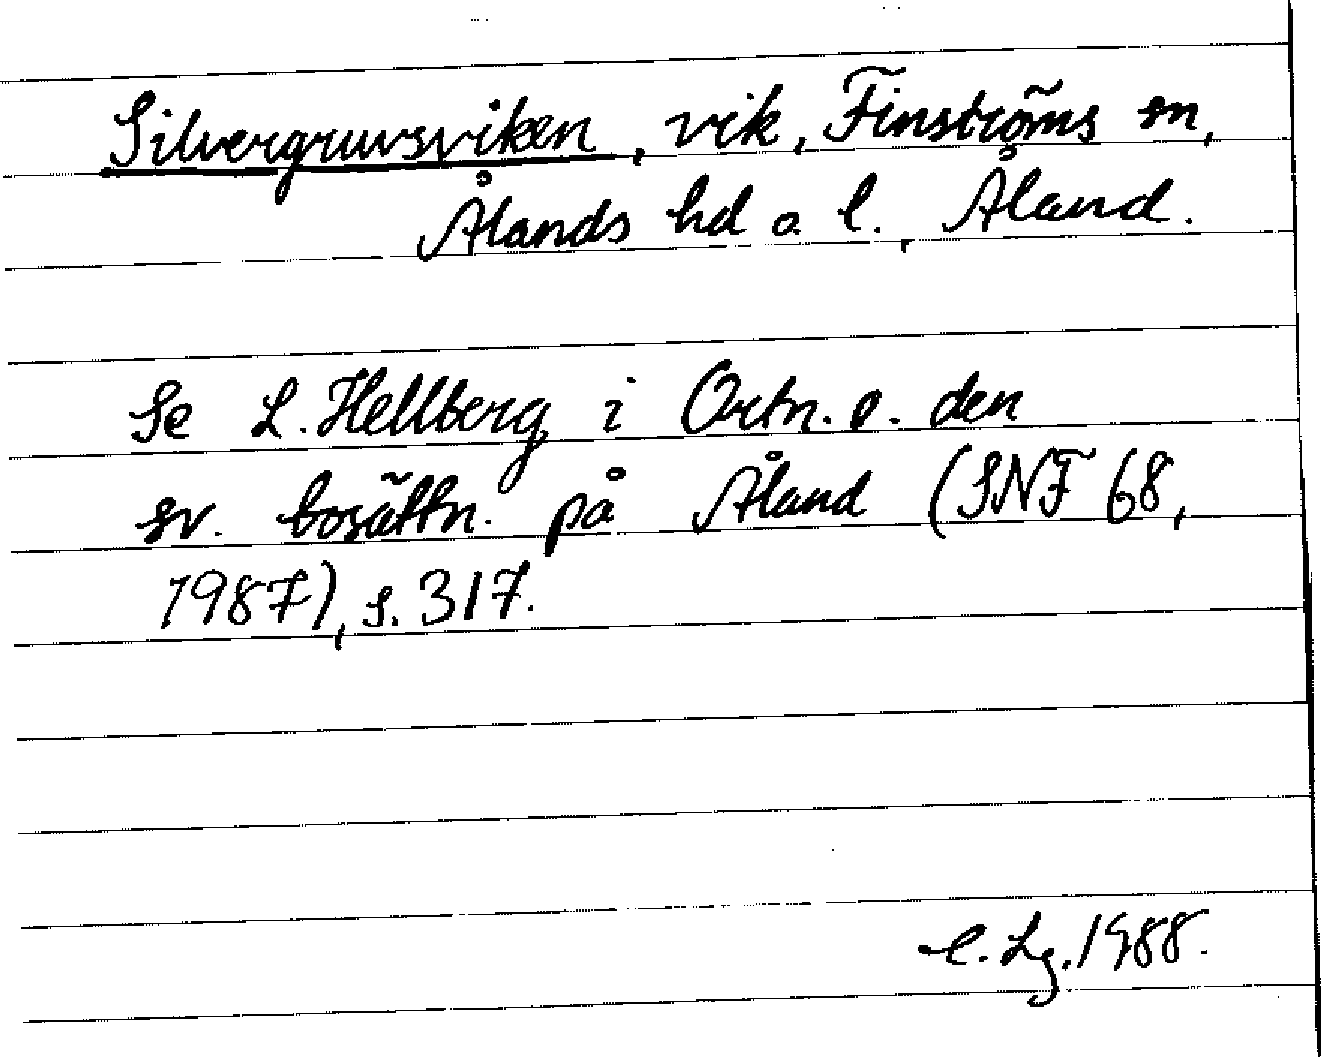 Silvergruvsviken, vik, Finströms sn,
Ålands hd o. l., Åland.
Se L. Hellberg i Ortn. o. den
sv. bosättn. på Åland (SNF 68,
1987), s. 317.
C. Lg. 1988.